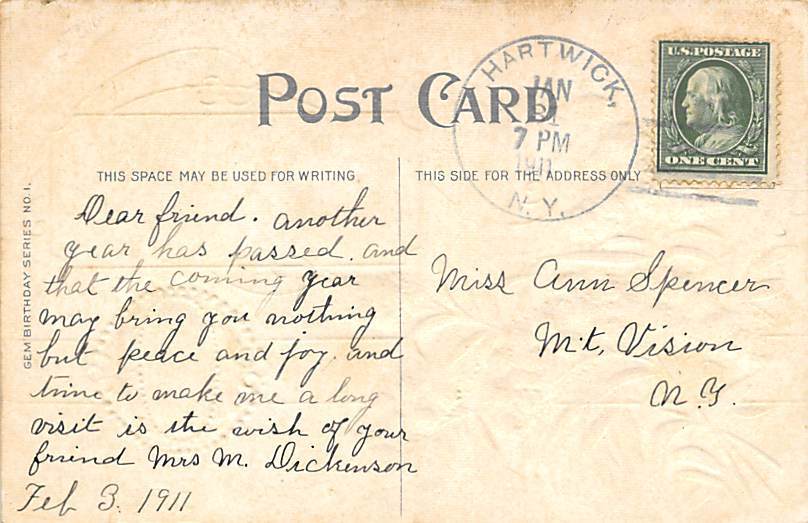 POST CARD
HARTWICK,
N.Y.
JAN
31
7 PM
1911
U.S. POSTAGE
ONE CENT
THIS SPACE MAY BE USED FOR WRITING
THIS SIDE FOR THE ADDRESS ONLY
GEM BIRTHDAY SERIES NO. 1.
Dear friend. another
year has passed. and
that the coming year
may bring you nothing
but peace and joy. and
time to make me a long
visit is the wish of your
friend Mrs M. Dickenson
Feb 3. 1911
Miss Ann Spencer
Mt, Vision
N.Y.